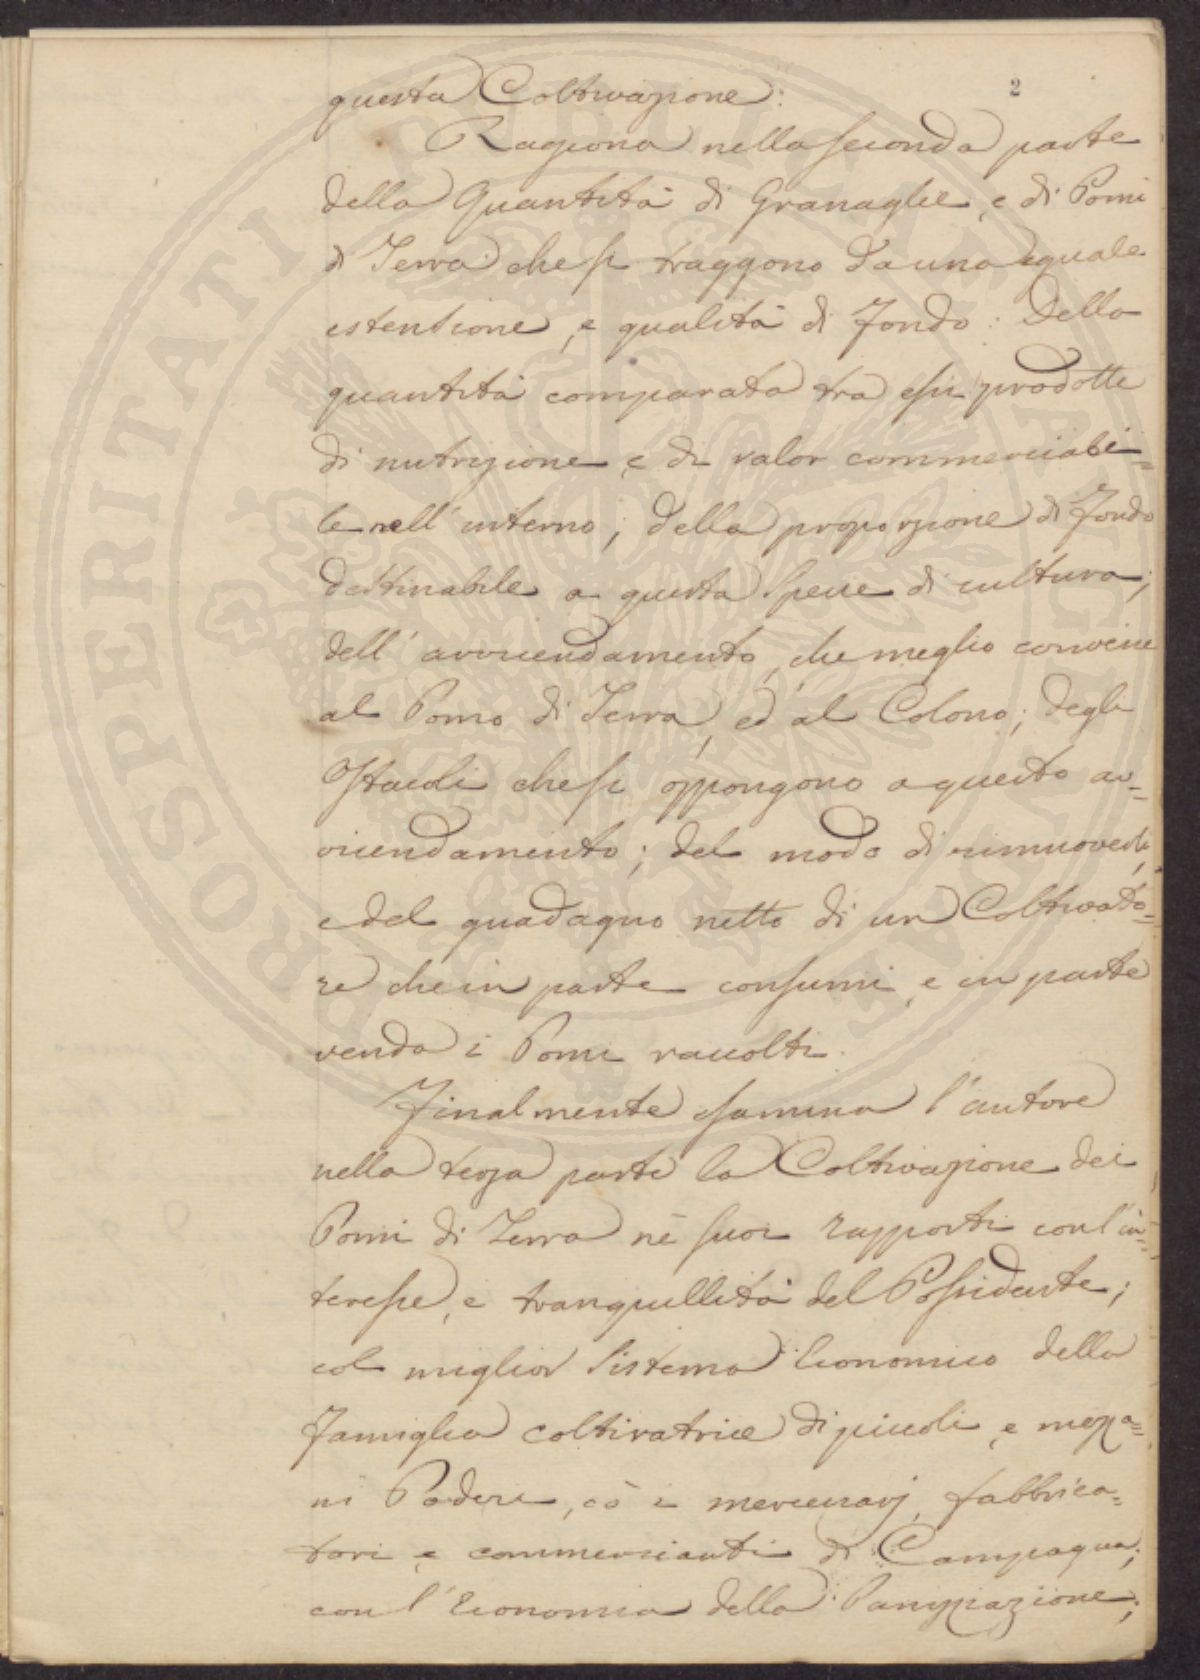 2
questa Coltivazione:
Ragiona nella seconda parte
della Quantità di Granaglie, e di Pomi
di Terra che si traggono da una eguale
estensione, e qualità di fondo: Della
quantità comparata tra essi prodotti
di nutrizione, e di valor commerciabi=
le nell'interno; della proporzione di fondo
destinabile a questa Specie di cultura;
dell'avvicendamento, che meglio conviene
al Pomo di Terra, ed al Colono; degli
Ostacoli che si oppongono a questo av=
vicendamento; del modo di rimuoverli,
e del guadagno netto di un Coltivato=
re che in parte consumi, e in parte
venda i Pomi raccolti.
Finalmente esamina l'autore
nella terza parte la Coltivazione dei
Pomi di Terra nè suoi rapporti con l'in=
teresse, e tranquillità del Possidente;
col miglior Sistema Economico della
Famiglia coltivatrice di piccoli, e mezza=
ni Poderi, cò i mercenarj, fabbrica=
tori, e commercianti di Campagna;
con l'Economia della Panizzazione;
PROSPERITATI PUBLICAE AUGENDAE